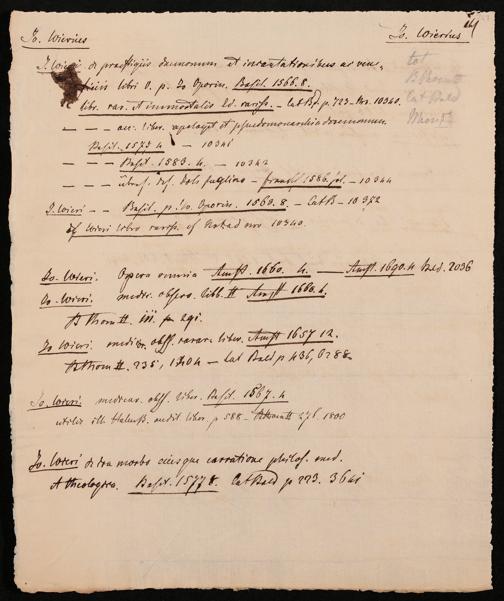 Jo. Wierius Jo. Wierius
J. Wieri de praestigiis daemonum et incantationibus ac vene-
ficiis libri V. p. Jo Oporin. Basil. 1566. 8.
libr. rar. et immortalis Ed. rariss. - Cat B p. 723 - Nr. 10340.
— — — acc. liber apologet et pseudomonarchia daemonum.
Basil. 1577. 4 — 10341
— — — Basil. 1583. 4. — 10342
— — — Fuglino — Francf 1586. fol. — 10344
J. Wieri — — Basil. p. Jo. Oporin. 1560. 8 — Cat B — 10352
Wieri libro rariss. cf nro 10340.
Jo. Wieri. Opera omnia Amst. 1660. 4. — Amst. 1690. 4 2036
Jo. Wieri. medic. observ. libb. II Amst 1660. 4.
B Thom II. iii. 291.
Jo Wieri. medicar. obss. rarar. liber. Amst 1657 12.
B Thom II. 235, 1204 — Cat Bald p 436, 6288
Jo. Wieri medicar. obss. liber. Basil. 1567. 4
utilis ill. medit liber. p 588 — B Thom II 276. 1800
Jo. Wieri de ira morbo eiusque curatione philos. med.
et theologica. Basil. 1577 8. Cat Bald p 273. 3641
tot
Cat Bald